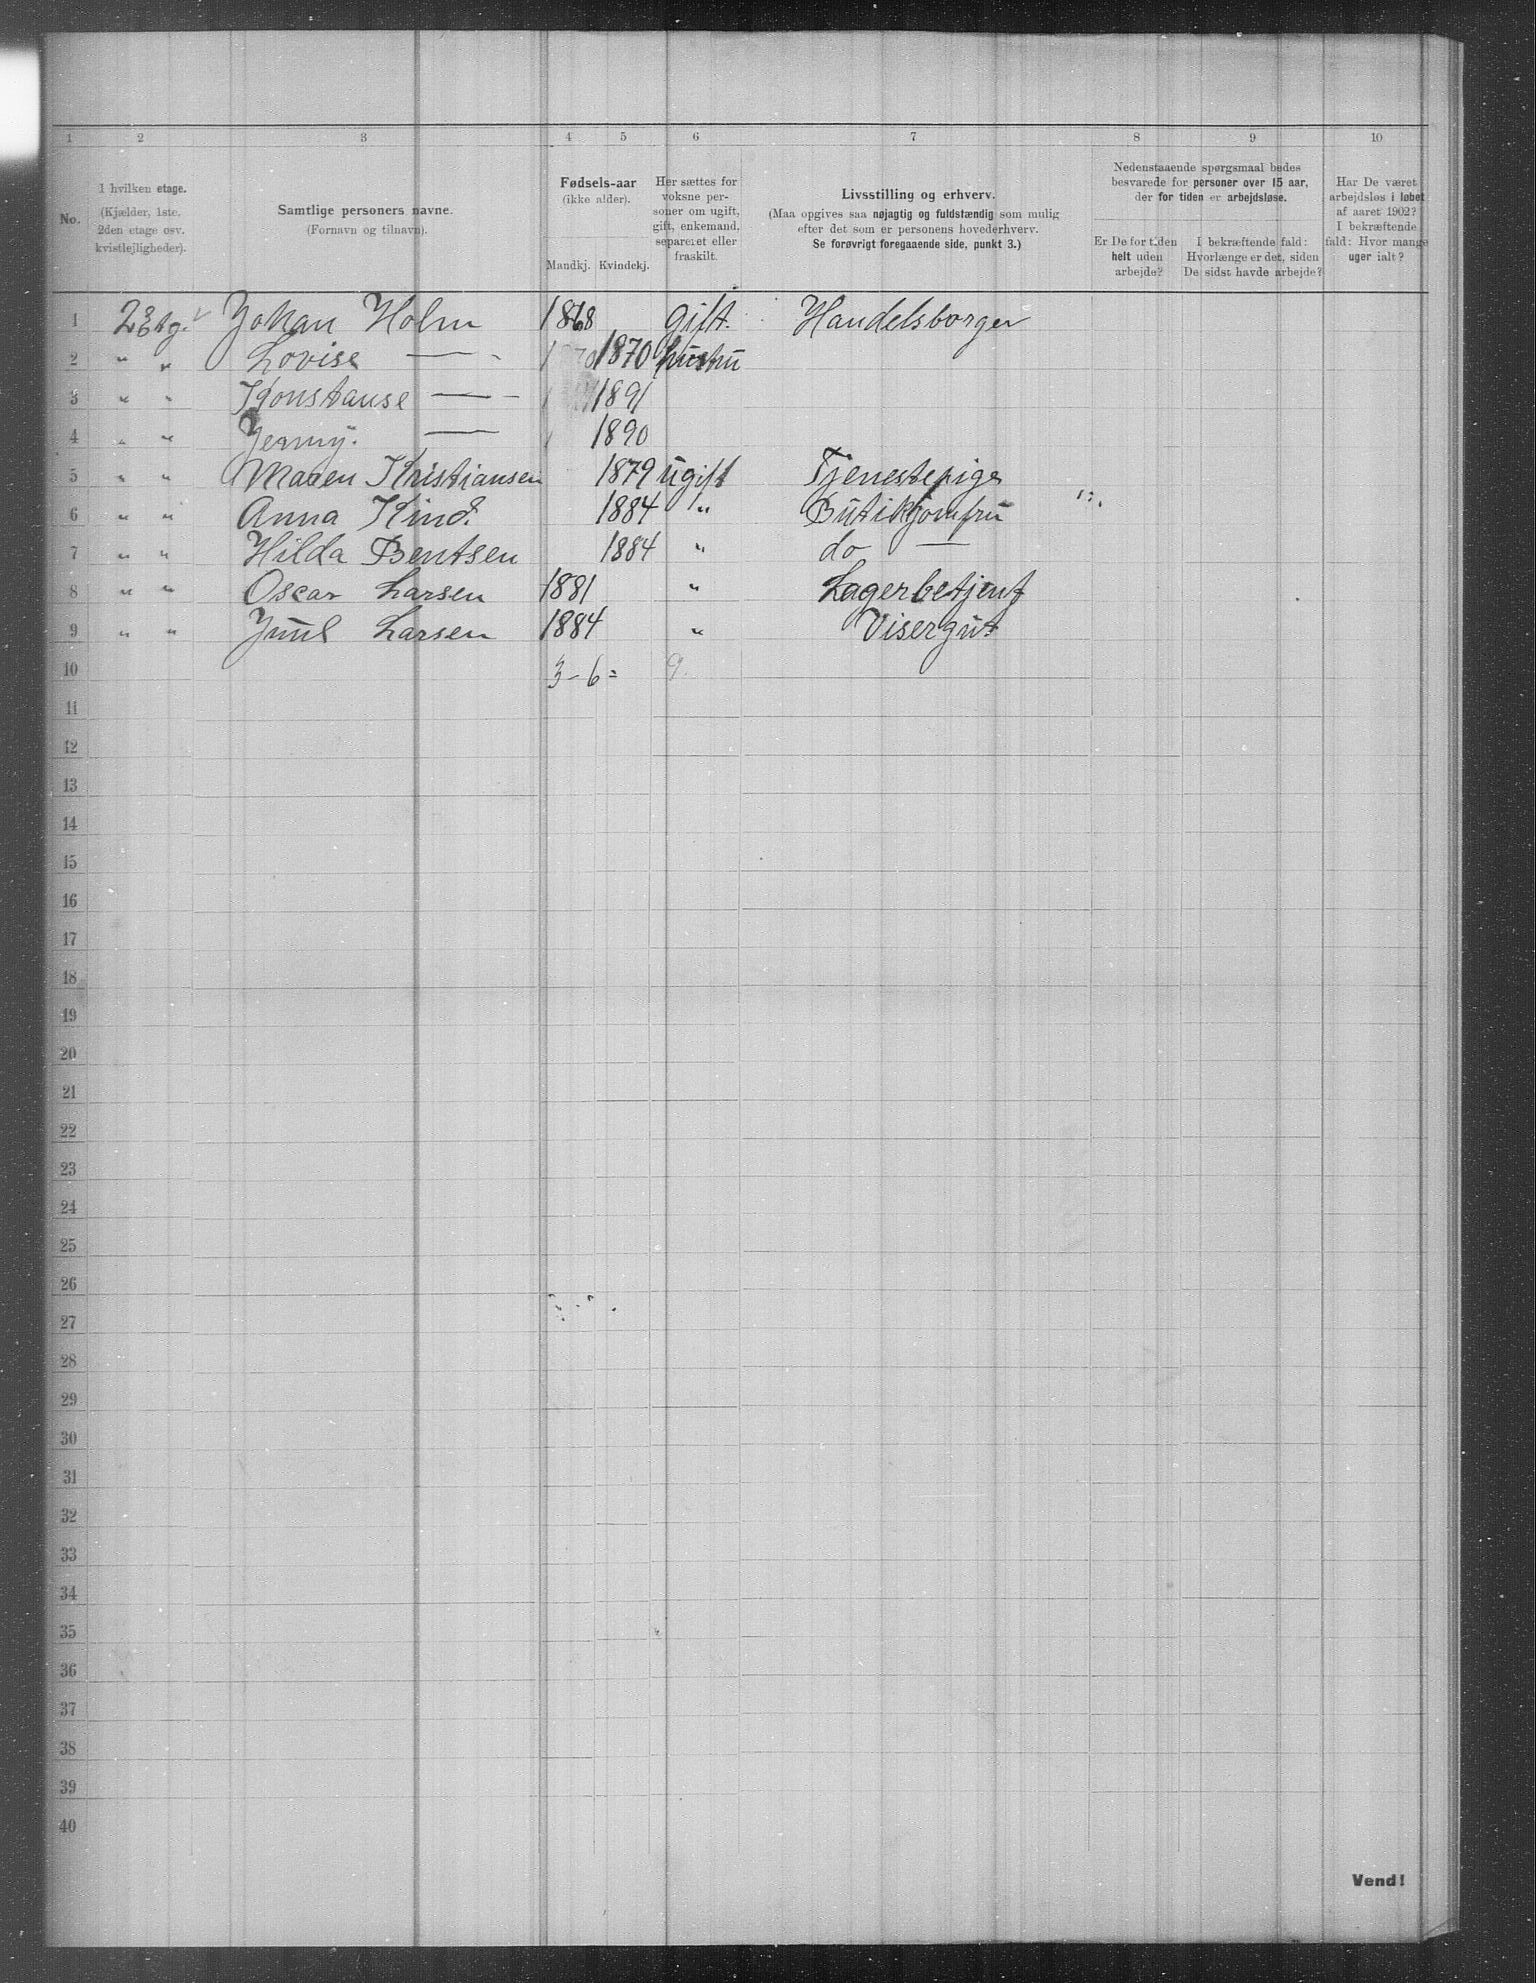 1 2 3 4 5 6 7 8 9 10
No.
I hvilken etage.
(Kjælder, 1ste, 2den etage osv. kvistlejligheder).
Samtlige personers navne.
(Fornavn og tilnavn).
Fødsels-aar
(ikke alder).
Mandkj. Kvindekj.
Her sættes for voksne personer om ugift, gift, enkemand, separeret eller fraskilt.
Livsstilling og erhverv.
(Maa opgives saa nøjagtig og fuldstændig som mulig
efter det som er personens hovederhverv.
Se forøvrigt foregaaende side, punkt 3.)
Nedenstaaende spørgsmaal bedes
besvarede for personer over 15 aar,
der for tiden er arbejdsløse.
Er De for tiden helt uden arbejde?
I bekræftende fald: Hvorlænge er det, siden De sidst havde arbejde?
Har De været arbejdsløs i løbet af aaret 1902? I bekræftende fald: Hvor mange uger ialt?
1 2 Etg. Johan Holm 1868 gift. Handelsborger
2 " " Lovise — 1870 hustru
3 " " Konstanse — 1891
4 " " Jenny. — 1890
5 " " Maren Kristiansen 1879 ugift Tjenestepige
6 " " Anna Kind. 1884 " Butikjomfru
7 " " Hilda Bentsen 1884 " do —
8 " " Oscar Larsen 1881 " Lagerbetjent
9 " " Juul Larsen 1884 " Visergut
10 3 - 6 = 9.
11
12
13
14
15
16
17
18
19
20
21
22
23
24
25
26
27
28
29
30
31
32
33
34
35
36
37
38
39
40
Vend!